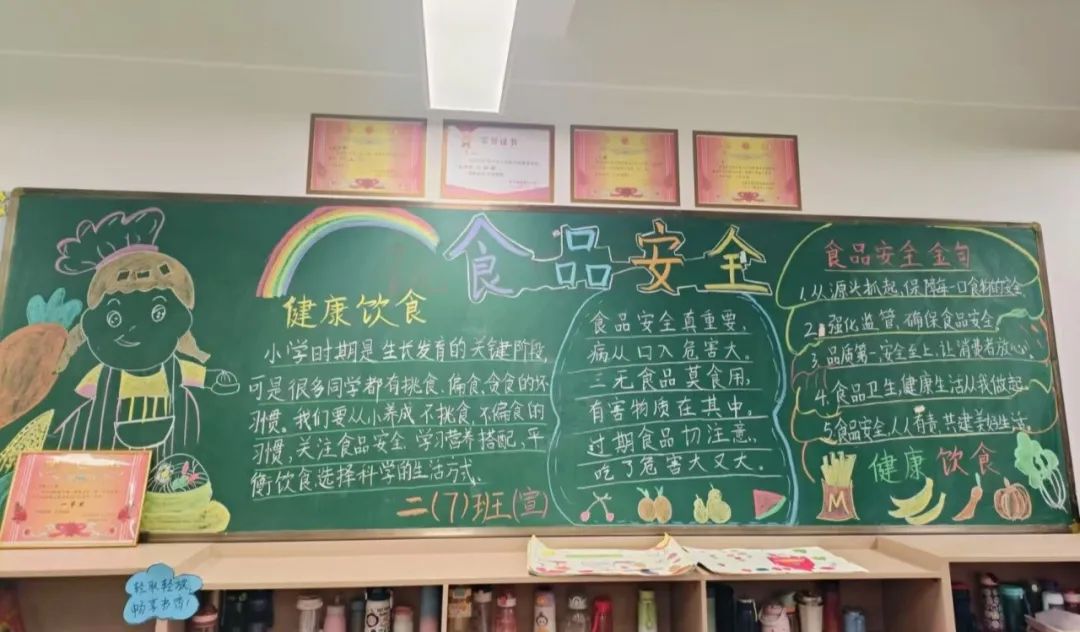 荣誉证书
食品安全
健康饮食
小学时期是生长发育的关键阶段,
可是很多同学都有挑食、偏食、贪食的坏
习惯。我们要从小养成不挑食、不偏食的
习惯,关注食品安全,学习营养搭配,平
衡饮食,选择科学的生活方式。
二(7)班(宣)
食品安全真重要,
病从口入危害大。
三无食品莫食用,
有害物质在其中。
过期食品切注意,
吃了危害大又大。
食品安全金句
1.从源头抓起,保障每一口食物的安全
2.强化监管,确保食品安全
3.品质第一,安全至上,让消费者放心。
4.食品卫生,健康生活从我做起
5.食品安全,人人有责,共建美好生活。
M
健康饮食
轻取轻放,
畅享书香!